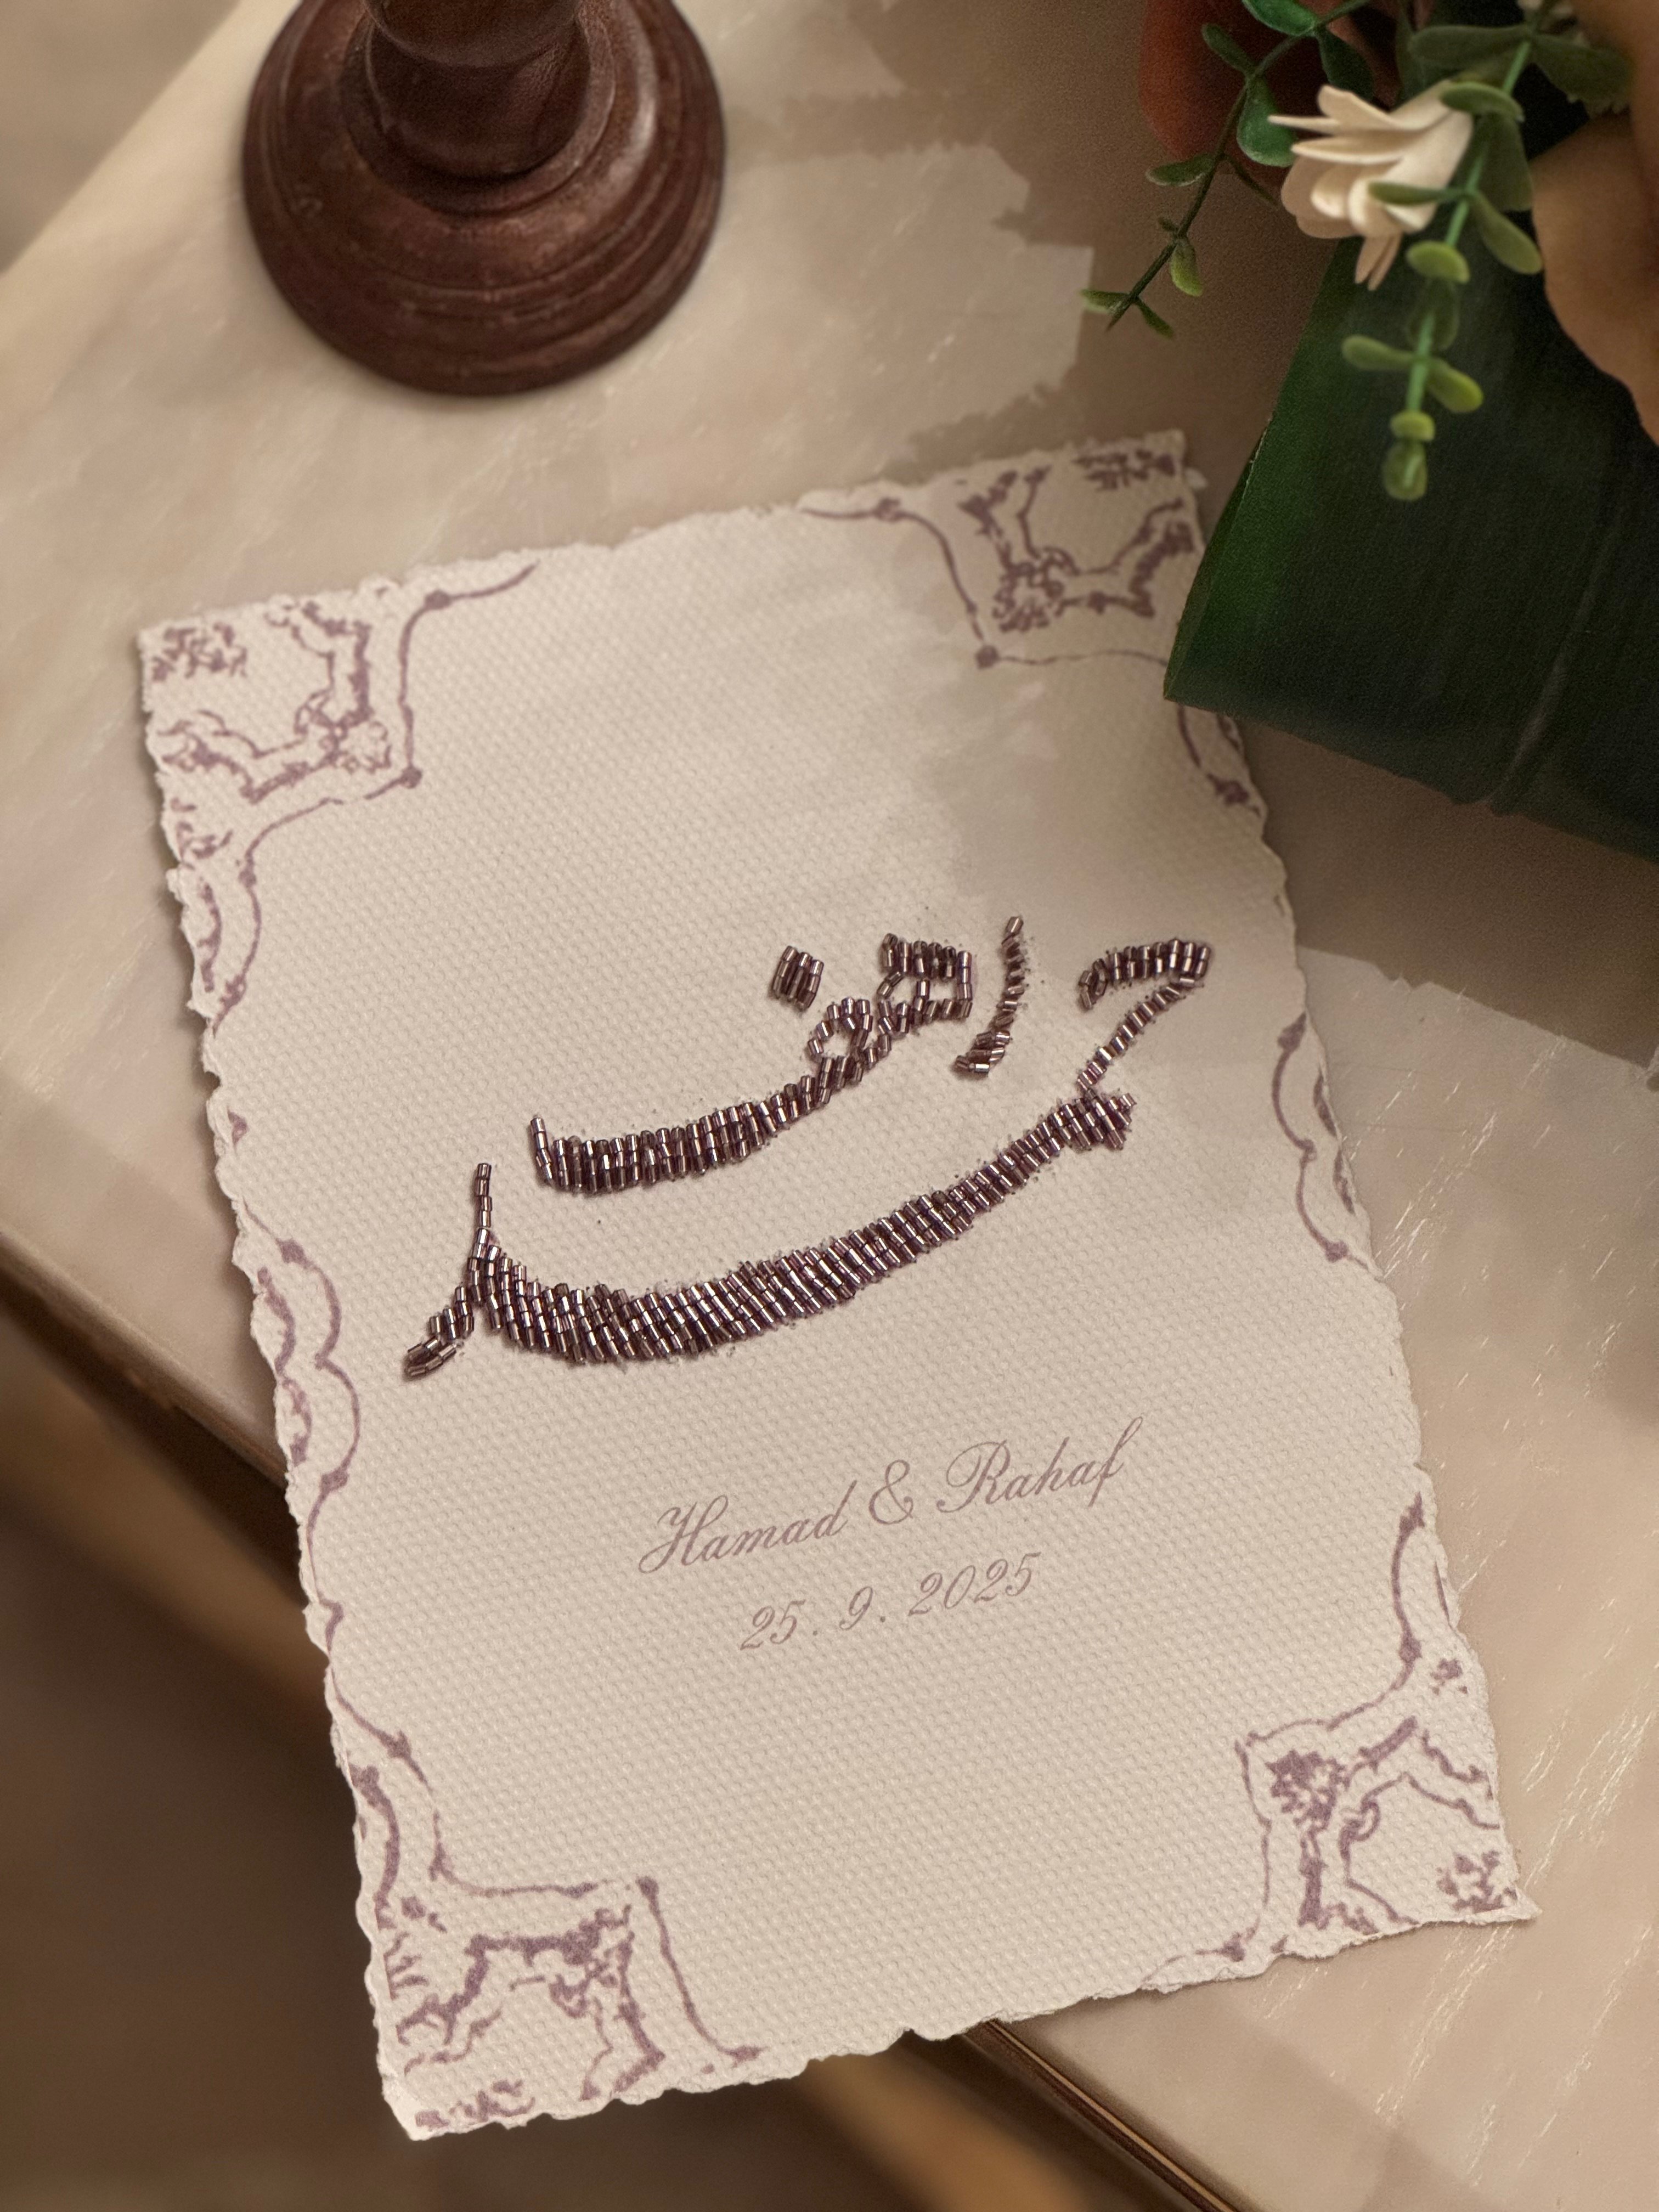 حمد
رهف
Hamad & Rahaf
25 . 9 . 2025